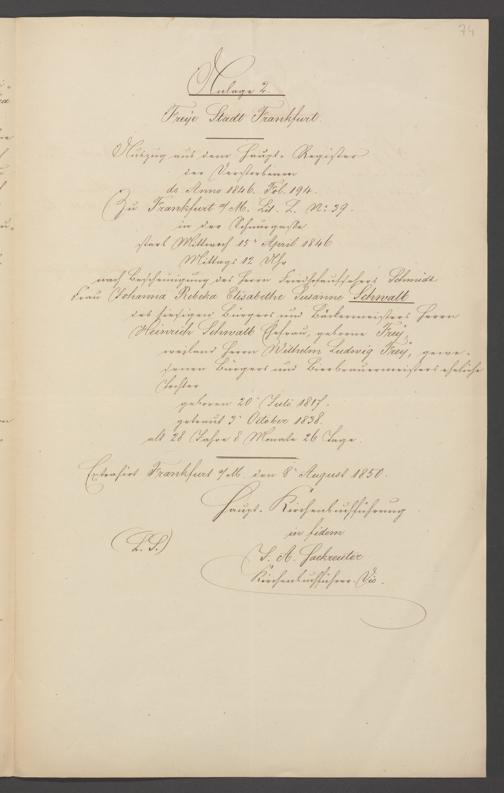 74
Anlage 2.
Freye Stadt Frankfurt.
Auszug aus dem Haupt-Register
der Verstorbenen
de Anno 1846. Fol. 194.
Zu Frankfurt a/M. Lit. L. No: 39.
in der Schnurgasse
starb Mittwoch 15n April 1846
Mittags 12 Uhr
nach Bescheinigung des Herrn Schmidt
Frau Johanna Rebeka Elisabethe Susanne Schwalt
des hiesigen Bürgers und Bäckermeisters Herrn
Heinrich Schwalt Ehefrau, geborne Frey,
weiland Herrn Wilhelm Ludwig Frey, gewe-
senen Bürgers und Bierbrauermeisters eheliche
Tochter
geboren 20n Juli 1817.
getraut 3n October 1838.
alt 28 Jahre 8 Monate 26 Tage.
Extrahirt Frankfurt a/M. den 8n August 1850.
Haupt-Kirchenbuchführung
in fidem
(L. S.)
Kirchenbuchführer-Vic.